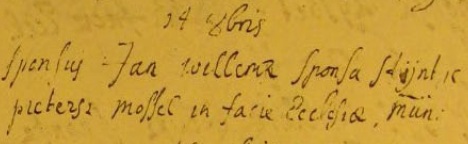 14 8bris
sponsus Jan willemz sponsa stijntie
pieters mossel in facie Ecclesiæ mun: